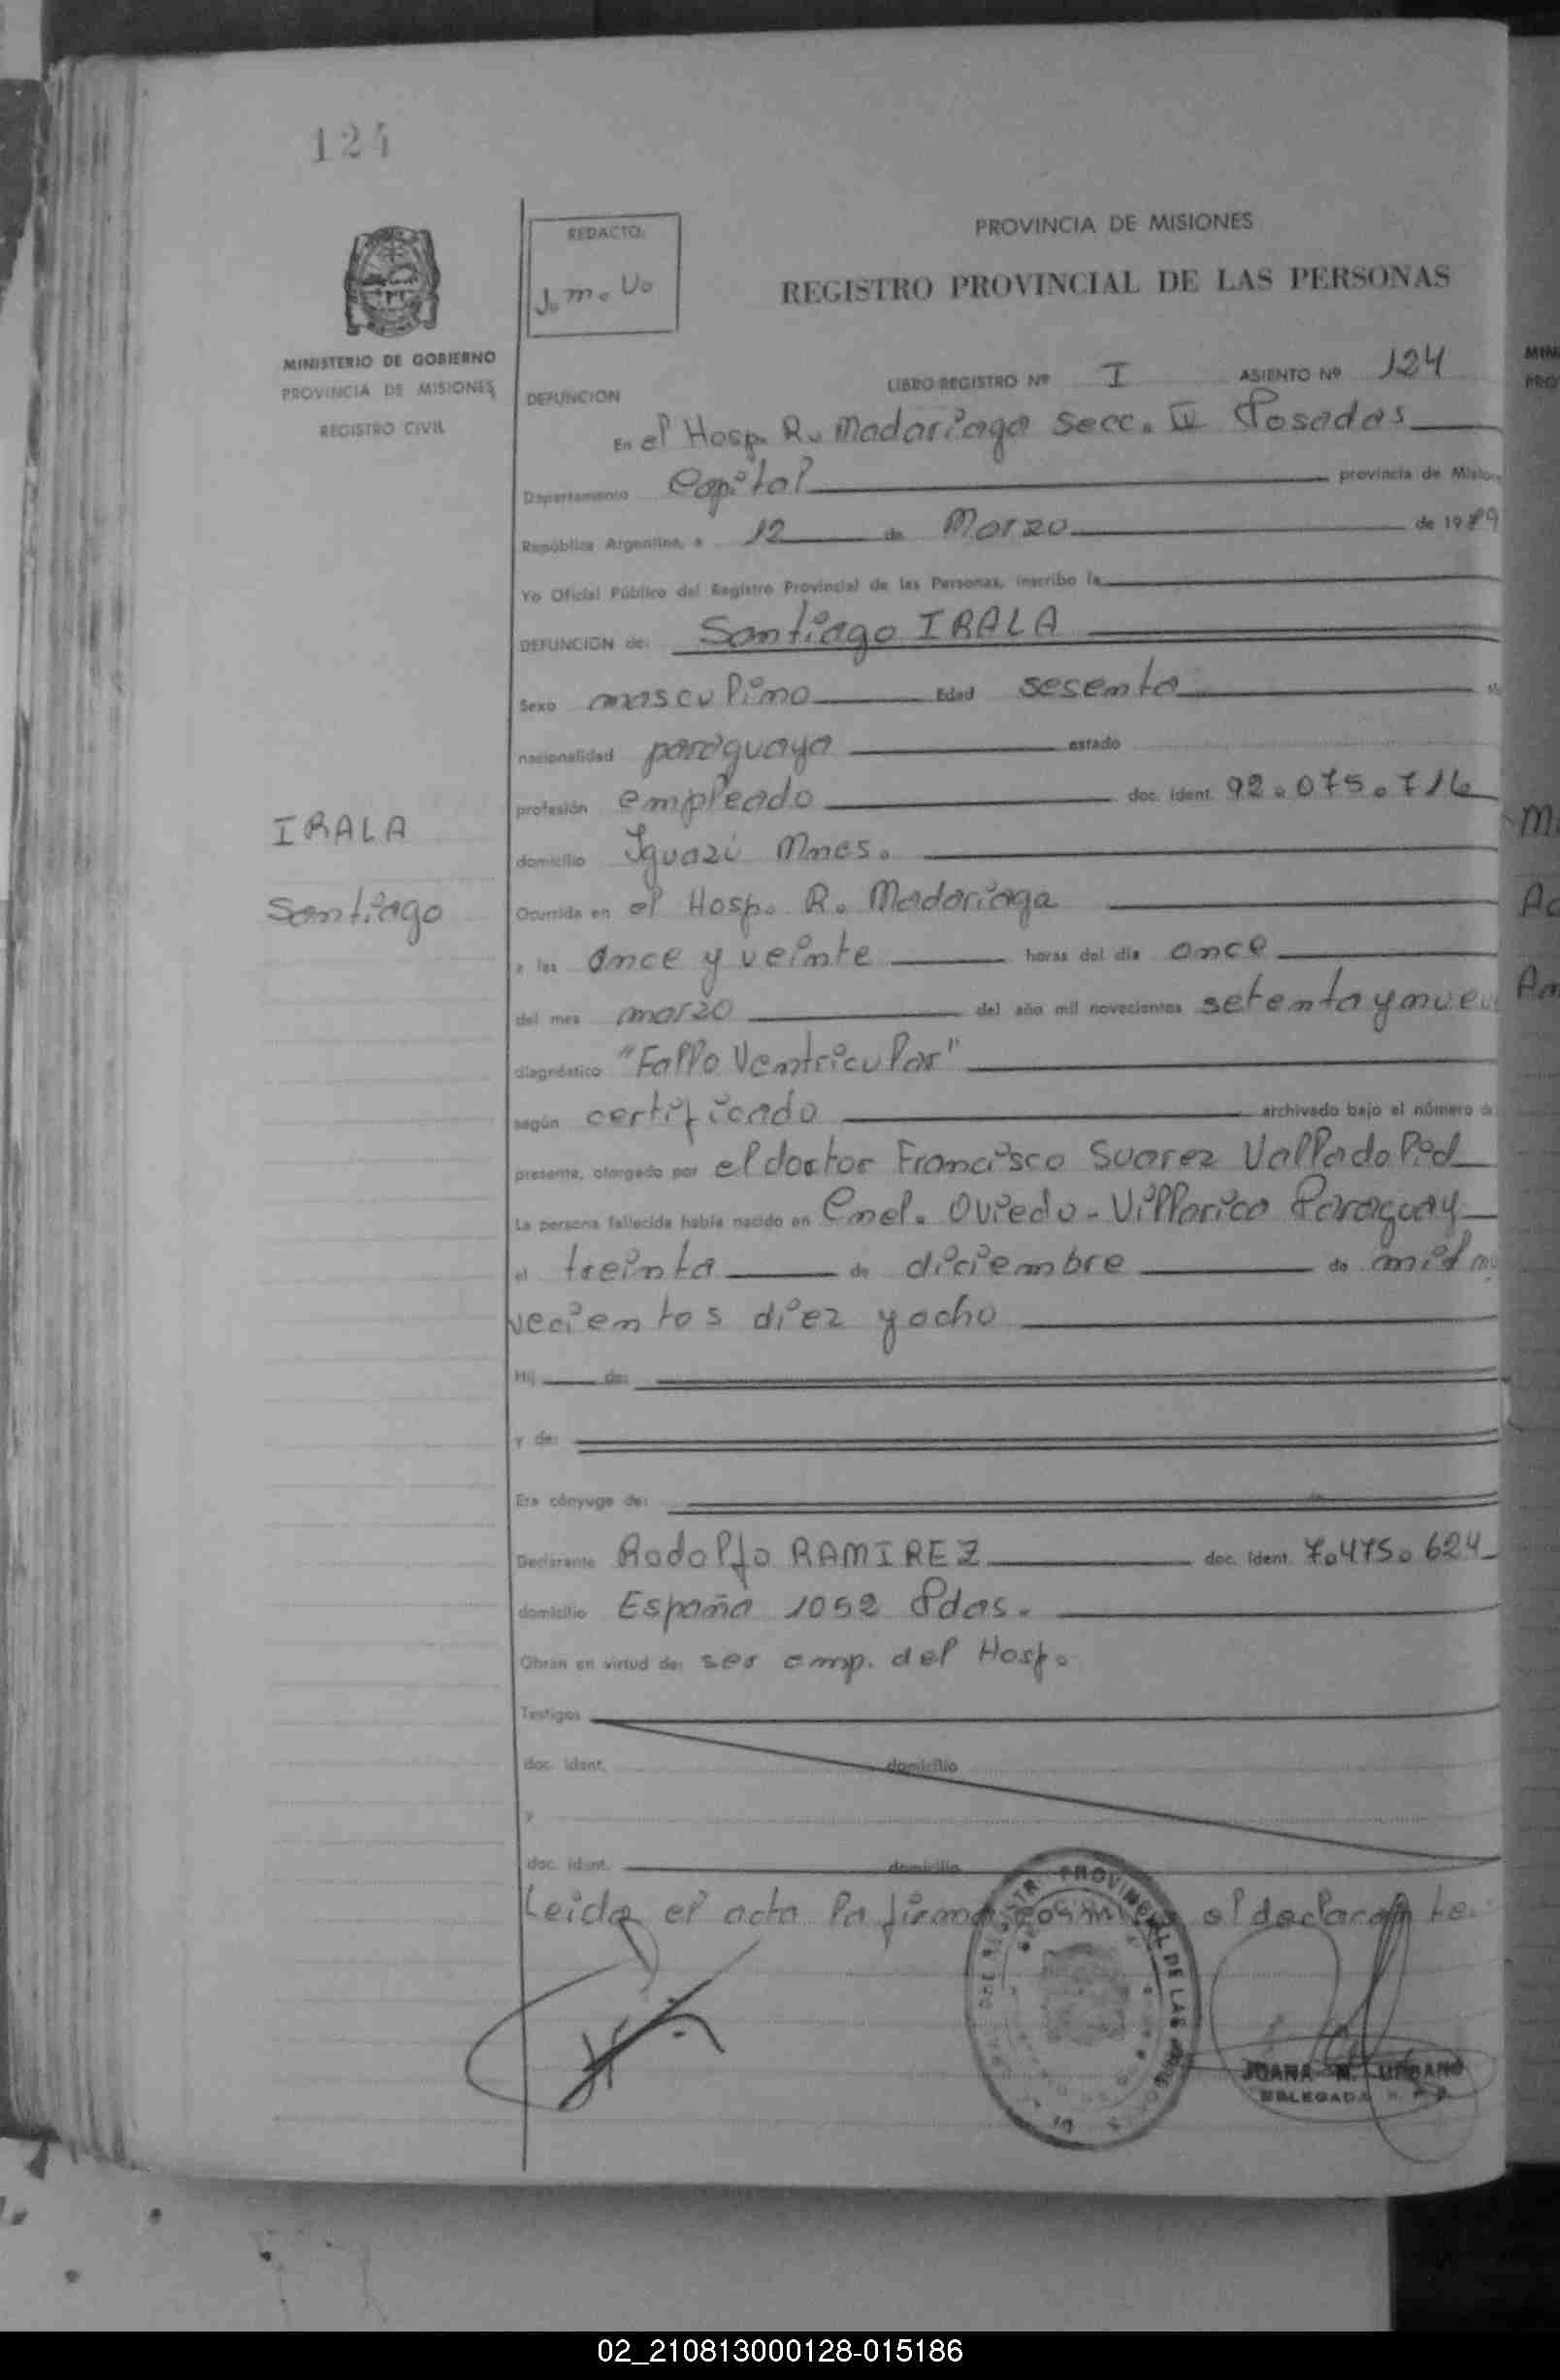 124
REDACTO:
J. M. U.
PROVINCIA DE MISIONES
REGISTRO PROVINCIAL DE LAS PERSONAS
MINISTERIO DE GOBIERNO
PROVINCIA DE MISIONES
REGISTRO CIVIL
LIBRO REGISTRO Nº I ASIENTO Nº 124
DEFUNCION
En el Hosp. R. Madariaga Secc. IV Posadas
Departamento Capital provincia de Mision
República Argentina, a 12 de Marzo de 1979
Yo Oficial Público del Registro Provincial de las Personas, inscribo la
DEFUNCION de: Santiago IRALA
Sexo masculino Edad sesenta
nacionalidad paraguaya estado
profesión empleado doc. ident. 92.075.716
IRALA
domicilio Iguazú Mnes.
Santiago
Ocurrida en el Hosp. R. Madariaga
a las once y veinte horas del día once
del mes marzo del año mil novecientos setenta y nueve
diagnóstico "Fallo Ventricular"
según certificado archivado bajo el número de
presente, otorgado por el doctor Francisco Suarez Valladolid
La persona fallecida había nacido en Cnel. Oviedo - Villarica Paraguay
el treinta de diciembre de mil no
vecientos diez y ocho
Hij de:
y de:
Era cónyuge de:
Declarante Rodolfo RAMIREZ doc. ident. 7.475.624
domicilio España 1052 Pdas.
Obran en virtud de: ser emp. del Hosp.
Testigos
doc. ident. domicilio
y
doc. ident. domicilio
Leida el acta la firma conmigo el declarante.
JUANA M. URBANO
DELEGADA R. P. P.
02_210813000128-015186